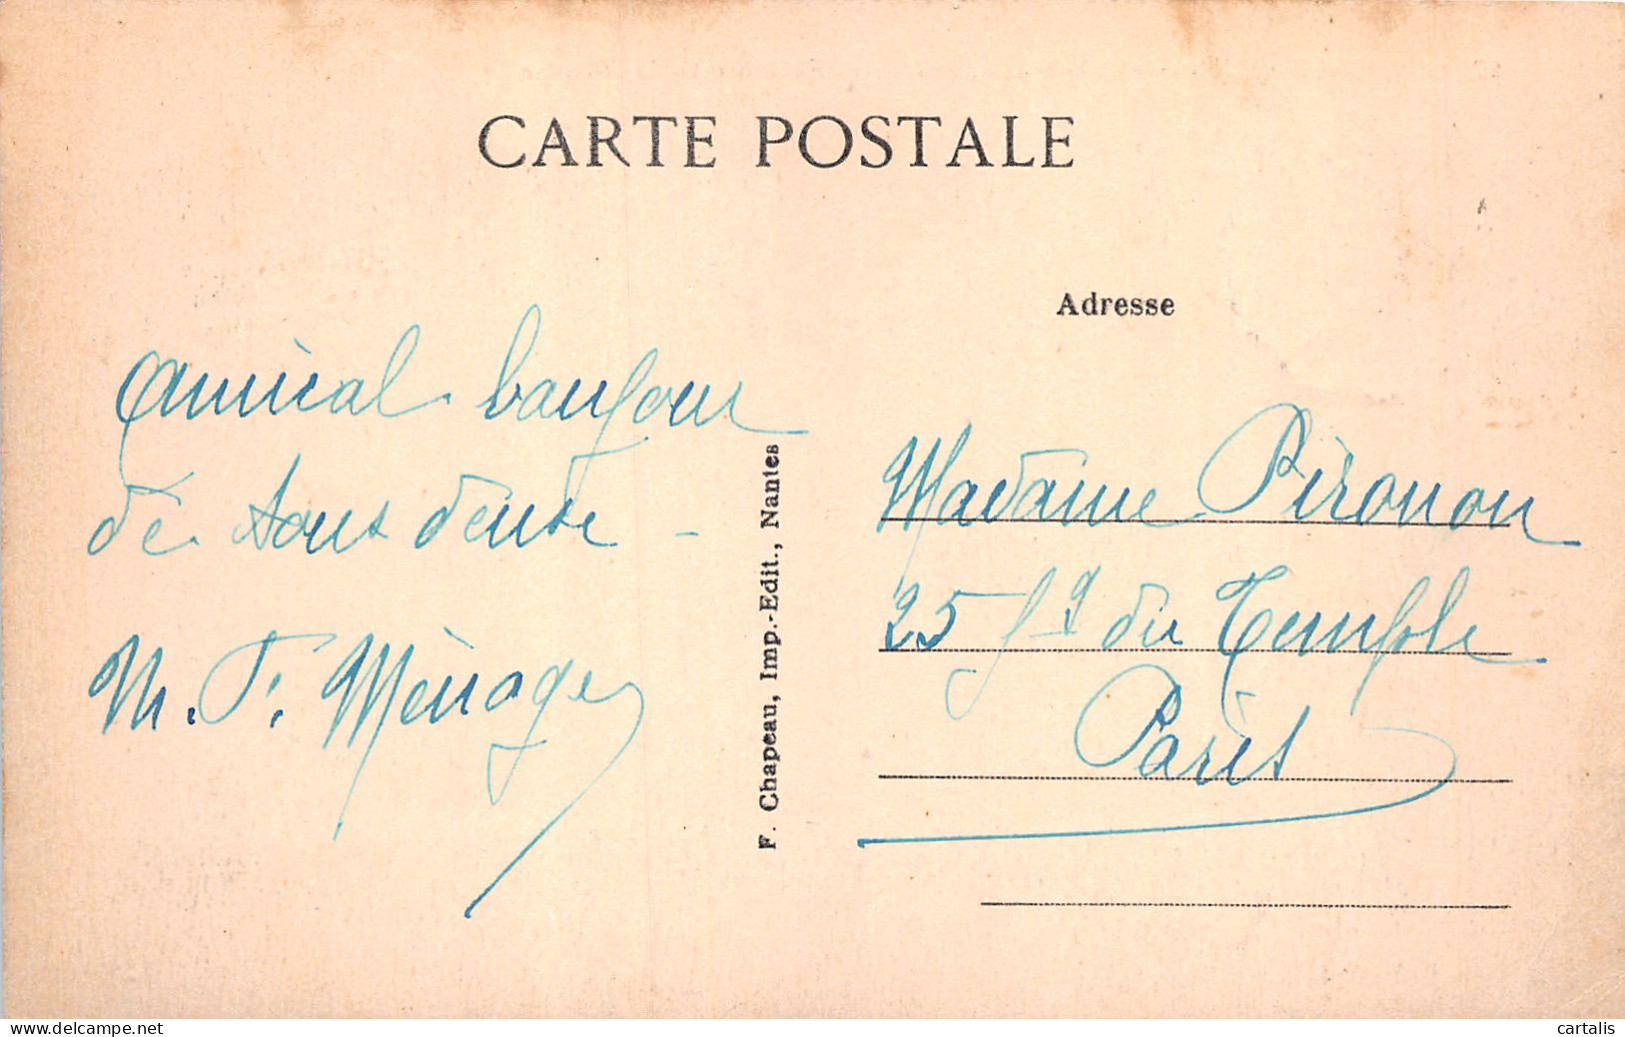 CARTE POSTALE
Adresse
Amical bonjour
de tous deux -
M. T. Ménage
F. Chapeau, Imp.-Edit., Nantes
Madame Pironon
25 fg du Temple
Paris
www.delcampe.net
cartalis